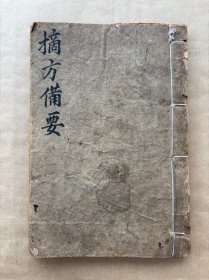 摘方備要